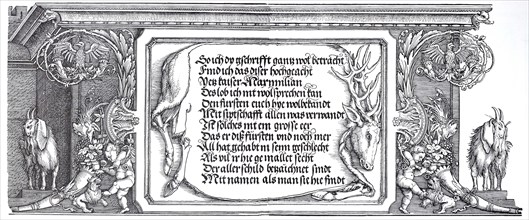 So ich dy gschrifft gantz wol betracht
Find ich das diser hochgeacht
Vey kaiser Maximilian
Des lob ich nit volsprechen kan
Den fursten euch hye wolbekandt
Mit siptschafft allen was verwandt
Ist solches nit ein grosse eer
Das er diß fursten und noch mer
All hat gehabt in seim geschlecht
Als vil ir hie gemallet secht
Der aller schild bezaichnet sindt
Mit namen als man sie hie findt